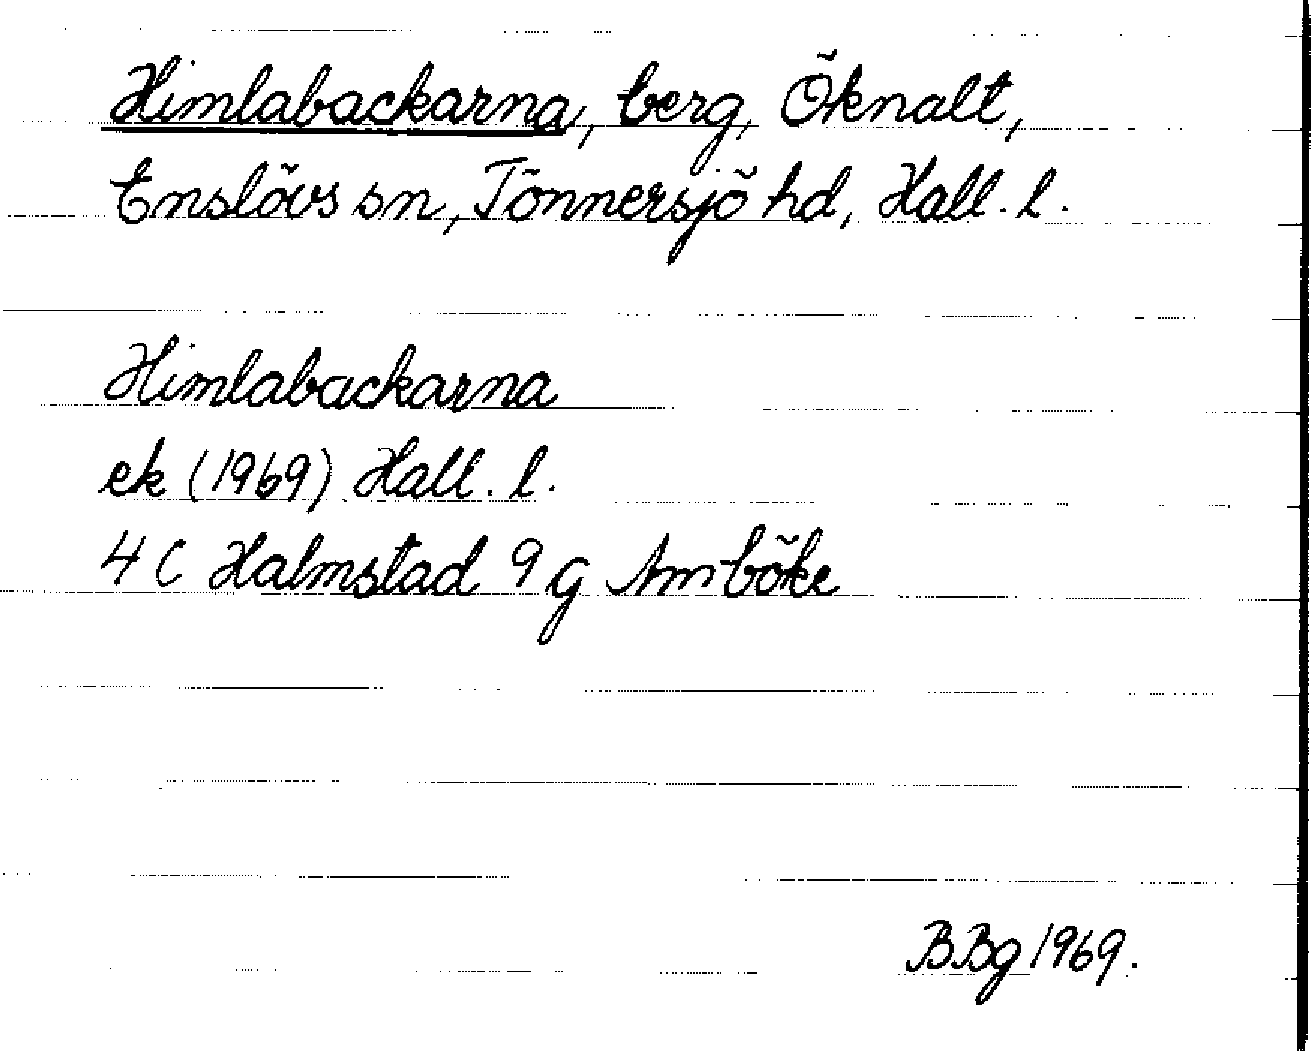 Himlabackarna, berg, Öknalt,
Enslövs sn, Tönnersjö hd, Hall. l.
Himlabackarna
ek (1969) Hall. l.
4 C Halmstad 9 g Amböke
BBg 1969.